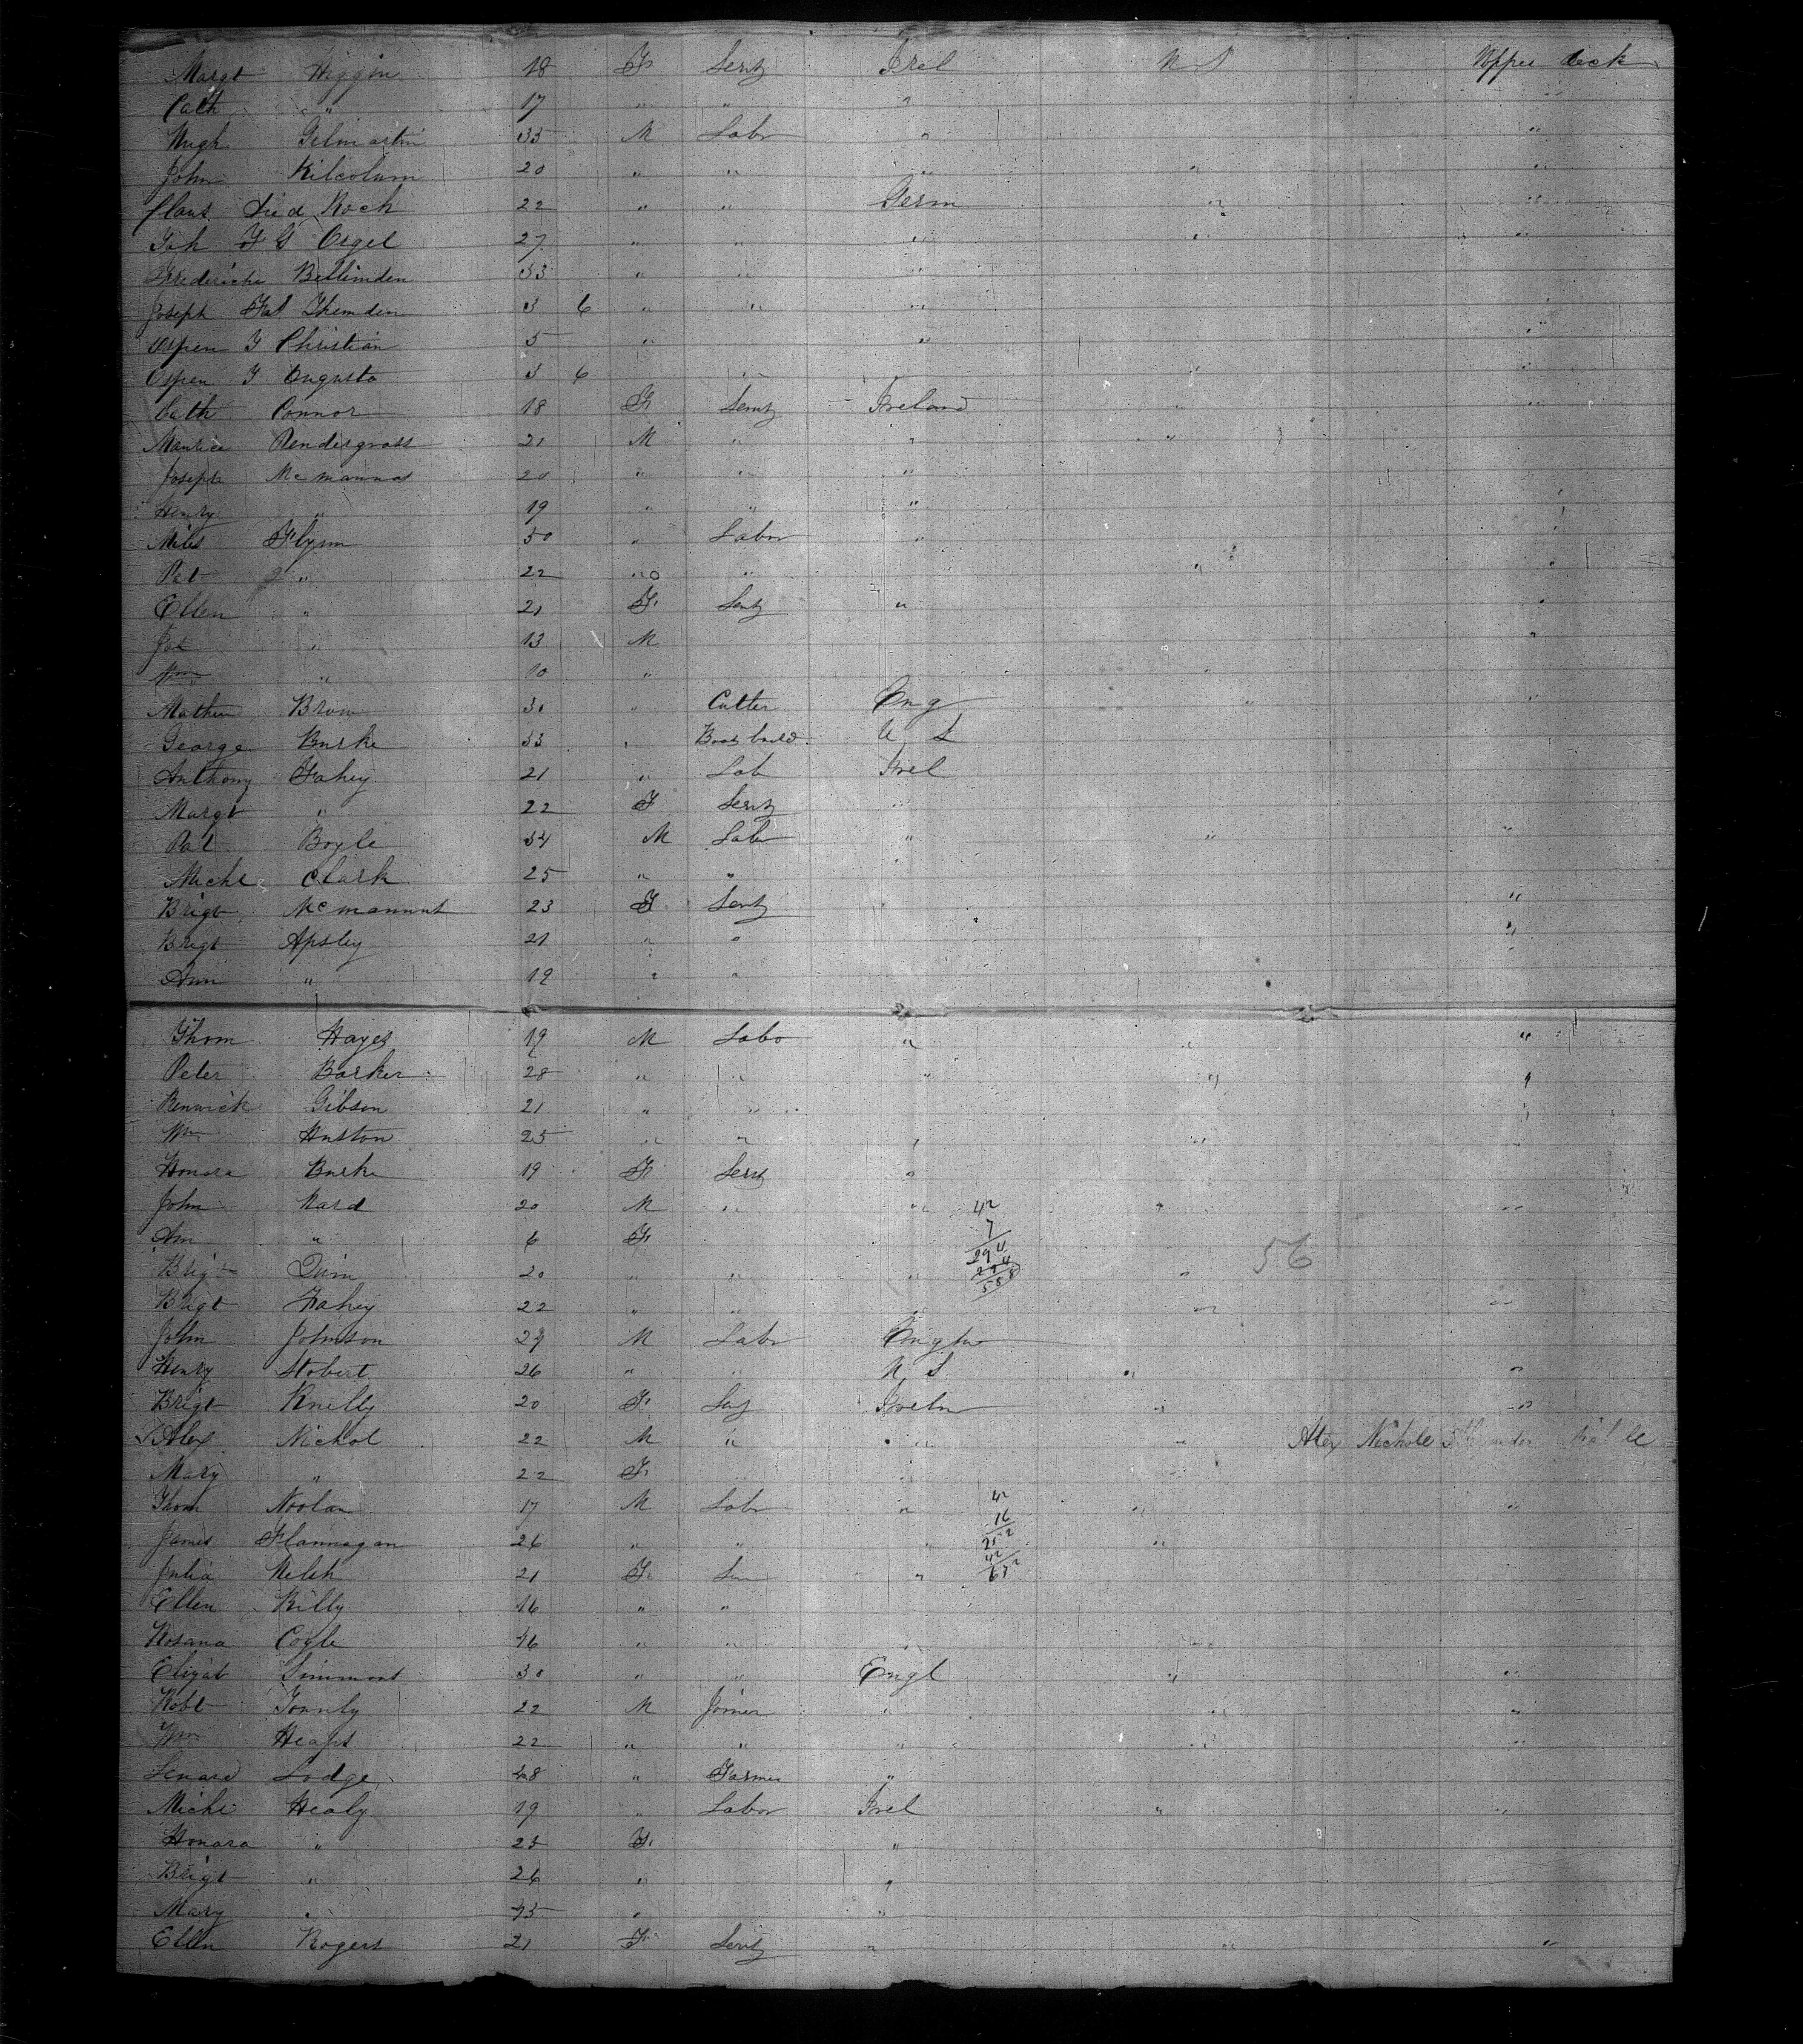 Margt Higgin 18 F Servt Irel U S Upper deck
Cath " 17 " " " "
Hugh Gilmartin 35 M Labr " "
John Kilcolum 20 " " " " "
Claus Died Kock 22 " " Germ " "
Joh F G Orgel 27 " " " " "
Fredericke Bellimden 33 " " "
Joseph Fat Themden 3 6 " " " "
Ospen F Christian 5 " " "
Ospen F Augusta 3 6 " " "
Cath Connor 18 F Servt Ireland " "
Maurice Pendergrast 21 M " " "
Joseph McMannas 20 " " "
Henry " 19 " " " "
Miles Flynn 50 " Labor " "
Pat " 22 " " " "
Ellen " 21 F Servt " "
" 13 M "
Wm " 10 " "
Mathew Brow 30 " Cutter Eng " "
George Burke 33 " Boat build U S
Anthony Fahey 21 " Lab Irel
Margt " 22 F Servt "
Pat Boyle 34 M Labr " " "
Michl Clark 25 " " "
Brigt McMannus 23 F Servt " "
Brigt Apsley 21 " " "
Ann " 19 " "
Thom Hayes 19 M Labo " " "
Peter Barker 28 " " " " "
Renwick Gibson 21 " " "
Wm Huston 25 " " " "
Honora Burke 19 F Servt "
John Ward 20 M " " 42 " "
Ann " 6 F 7
294
Brigt Quin 20 " " " 294 " 56
588
Brigt Fahey 22 " " " " "
John Johnson 29 M Labr Englan
Henry Stobert 26 " " U S " "
Brigt Knelly 20 F Servt Irelan " "
Alex Nichol 22 M " " " Alex Nichole
Mary " 22 F " "
Thom Noolan 17 M Labr " 42 " "
16
James Flannagan 26 " " " 252 "
42
Julia Welsh 21 F Ser " 672
Ellen Killy 16 " "
Rosana Cogle 46 " " " "
Elizab Simmons 30 " " Engl " "
Robt Townly 22 M Joiner " " "
Wm Heaps 22 " " " " "
Lenard Lodge 48 " Farmer "
Michl Healy 19 " Labor Irel " "
Honara " 25 F "
Brigt " 26 " "
Mary " 45 " "
Ellen Rogers 21 F Servt " " "